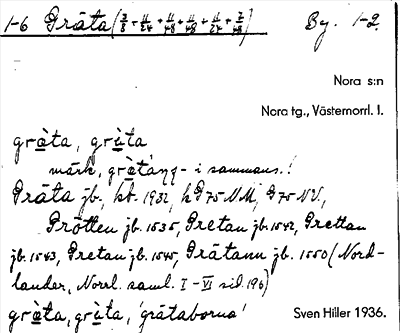 1-6 Gräta (3/8 + 11/24 + 11/48 + 11/48 + 11/24 + 7/48) By. 1-2.
Nora s:n
Nora tg., Västernorrl. l.
gräta, gräta
märk, i sammans.!
Gräta jb., kt. 1932, h G 75 NM, G 75 NV.,
Grötten jb. 1535, Gretan jb. 1542, Grettan
jb. 1543, Gretan jb. 1545, Grätann jb. 1550 (Nord-
lander, Norrl. saml. I - VI sid. 196)
gräta, gräta, 'grätaborna'
Sven Hiller 1936.